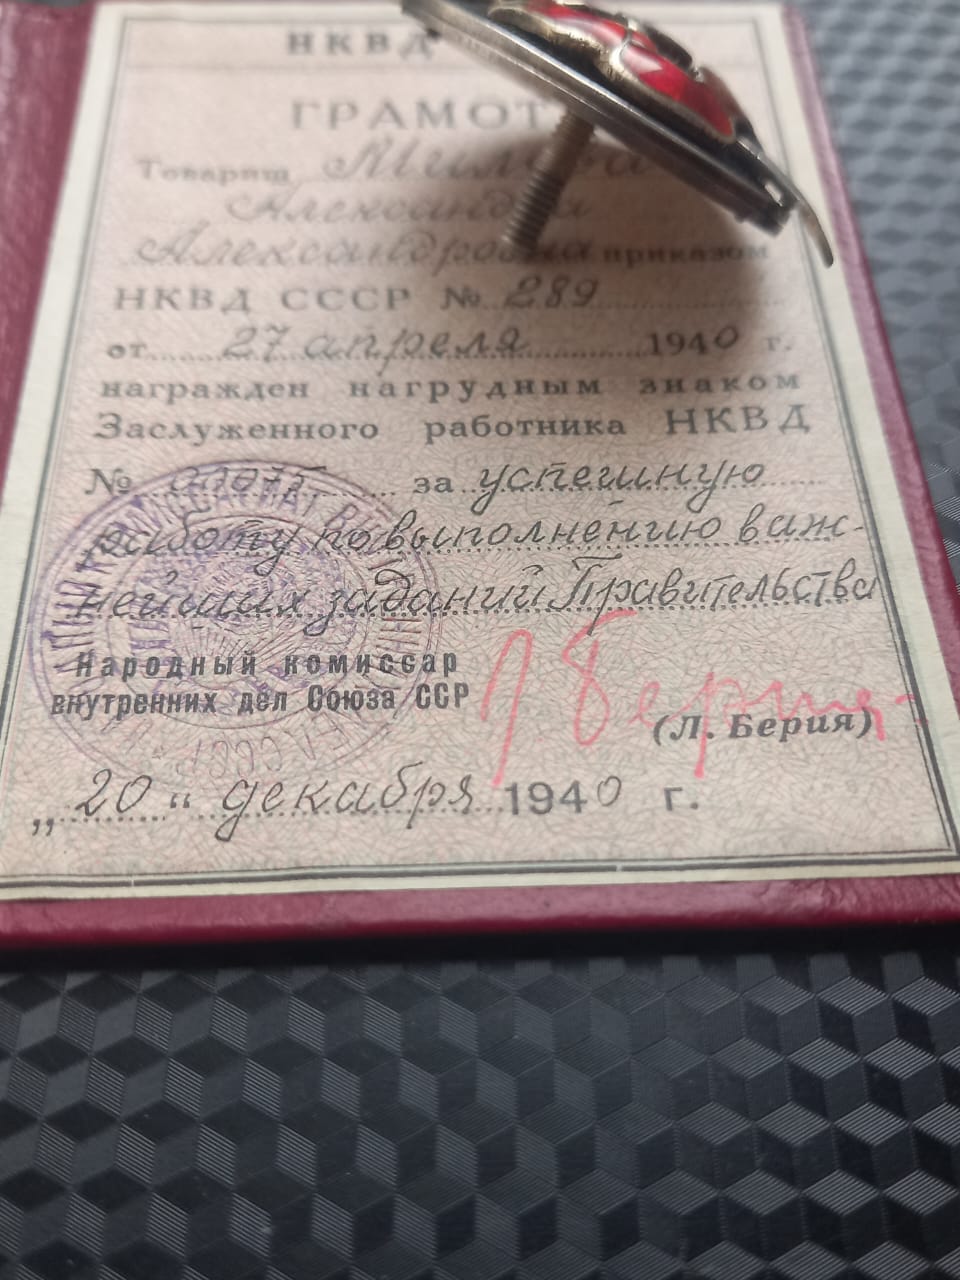 НКВД
ГРАМОТ
Товарищ
Александра
Александровна приказом
НКВД СССР № 289
от 27 апреля 1940 г.
награжден нагрудным знаком
Заслуженного работника НКВД
№ за успешную
работу по выполнению важ-
нейших заданий Правительства
Народный комиссар
внутренних дел Союза ССР
Л Берия
(Л. Берия)
„20“ декабря 1940 г.